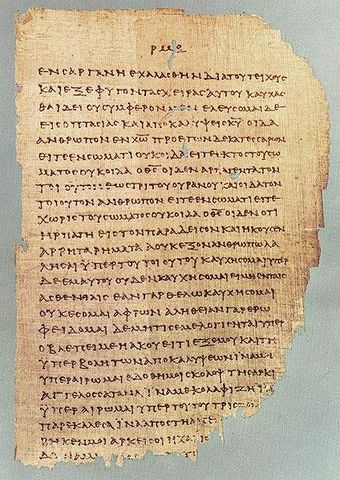 ΕΝϹΑΡΓΑΝΗΕΧΑΛΑϹΘΗΝΔΙΑΤΟΥΤΕΙΧΟΥϹ
ΚΑΙΕΞΕΦΥΓΟΝΤΑϹΧΕΙΡΑϹΑΥΤΟΥΚΑΥΧΑϹ
ΘΑΙΔΕΙΟΥϹΥΜΦΕΡΟΝΜΕΝΕΛΕΥϹΟΜΑΙΔΕ
ΕΙϹΟΠΤΑϹΙΑϹΚΑΙΑΠΟΚΑΛΥΨΕΙϹΚ̅Υ̅ΟΙΔΑ
ΑΝΘΡΩΠΟΝΕΝΧ̅Ρ̅Ω̅ΠΡΟΕΤΩΝΔΕΚΑΤΕϹϹΑΡΩΝ
ΕΙΤΕΕΝϹΩΜΑΤΙΟΥΚΟΙΔΑΕΙΤΕΕΚΤΟϹΤΟΥϹΩ
ΜΑΤΟϹΟΥΚΟΙΔΑΟΘ̅Ϲ̅ΟΙΔΕΝΑΡΠΑΓΕΝΤΑΤΟΝ
ΤΟΙΟΥΤΟΝΕΩϹΤΡΙΤΟΥΟΥΡΑΝΟΥΚΑΙΟΙΔΑΤΟΝ
ΤΟΙΟΥΤΟΝΑΝΘΡΩΠΟΝΕΙΤΕΕΝϹΩΜΑΤΙΕΙΤΕ
ΧΩΡΙϹΤΟΥϹΩΜΑΤΟϹΟΥΚΟΙΔΑΟΘ̅Ϲ̅ΟΙΔΕΝΟΤΙ
ΗΡΠΑΓΗΕΙϹΤΟΝΠΑΡΑΔΕΙϹΟΝΚΑΙΗΚΟΥϹΕΝ
ΑΡΡΗΤΑΡΗΜΑΤΑΑΟΥΚΕΞΟΝΑΝΘΡΩΠΩΛΑ
ΛΗϹΑΙΥΠΕΡΤΟΥΤΟΙΟΥΤΟΥΚΑΥΧΗϹΟΜΑΙΥΠΕΡ
ΔΕΕΜΑΥΤΟΥΟΥΔΕΝΚΑΥΧΗϹΟΜΑΙΕΙΜΗΕΝΤΑΙϹ
ΑϹΘΕΝΕΙΑΙϹΕΑΝΓΑΡΘΕΛΩΚΑΥΧΗϹΟΜΑΙ
ΟΥΚΕϹΟΜΑΙΑΦΡΩΝΑΛΗΘΕΙΑΝΓΑΡΕΡΩ
ΦΕΙΔΟΜΑΙΔΕΜΗΤΙϹΕΜΕΛΟΓΙϹΗΤΑΙΥΠΕΡ
ΟΒΛΕΠΕΙΜΕΗΑΚΟΥΕΙΤΙΕΞΕΜΟΥΚΑΙΤΗ
ΥΠΕΡΒΟΛΗΤΩΝΑΠΟΚΑΛΥΨΕΩΝΙΝΑΜΗ
ΥΠΕΡΑΙΡΩΜΑΙΕΔΟΘΗΜΟΙϹΚΟΛΟΨΤΗϹΑΡΚΙ
ΑΓΓΕΛΟϹϹΑΤΑΝΑΙΝΑΜΕΚΟΛΑΦΙΖΗΙΝΑ
ΥΠΕΡΑΙΡΩΜΑΙΥΠΕΡΤΟΥΤΟΥΤΡΙϹΤΟΝ
ΠΑΡΕΚΑΛΕϹΑΙΝΑΑΠΟϹΤΗ
ΡΗΚΕΝΜΟΙΑΡΚΕΙϹΟΙΗΧΑΡΙϹ